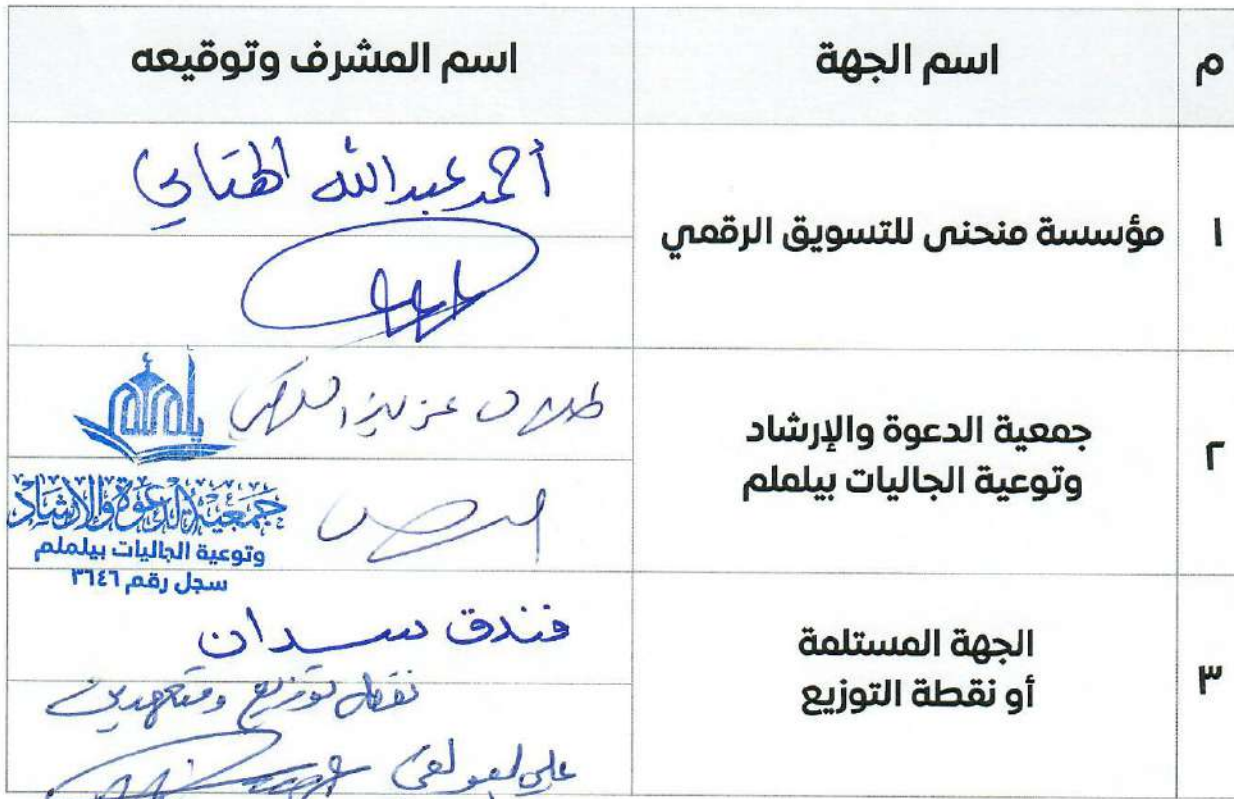 م اسم الجهة اسم المشرف وتوقيعه
١ مؤسسة منحنى للتسويق الرقمي
أحمد عبدالله
٢ جمعية الدعوة والإرشاد
وتوعية الجاليات بيلملم
عزيز
يلملم
جمعية الدعوة والارشاد
وتوعية الجاليات بيلملم
سجل رقم ٣٦٤٦
٣ الجهة المستلمة
أو نقطة التوزيع
فندق سدان
نقطة توزيع ومتعهدين
علي